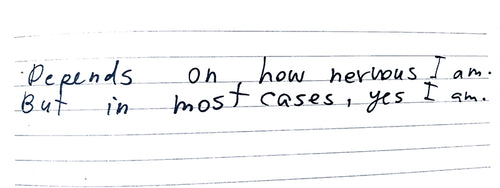 Depends on how nervous I am.
But in most cases, yes I am.